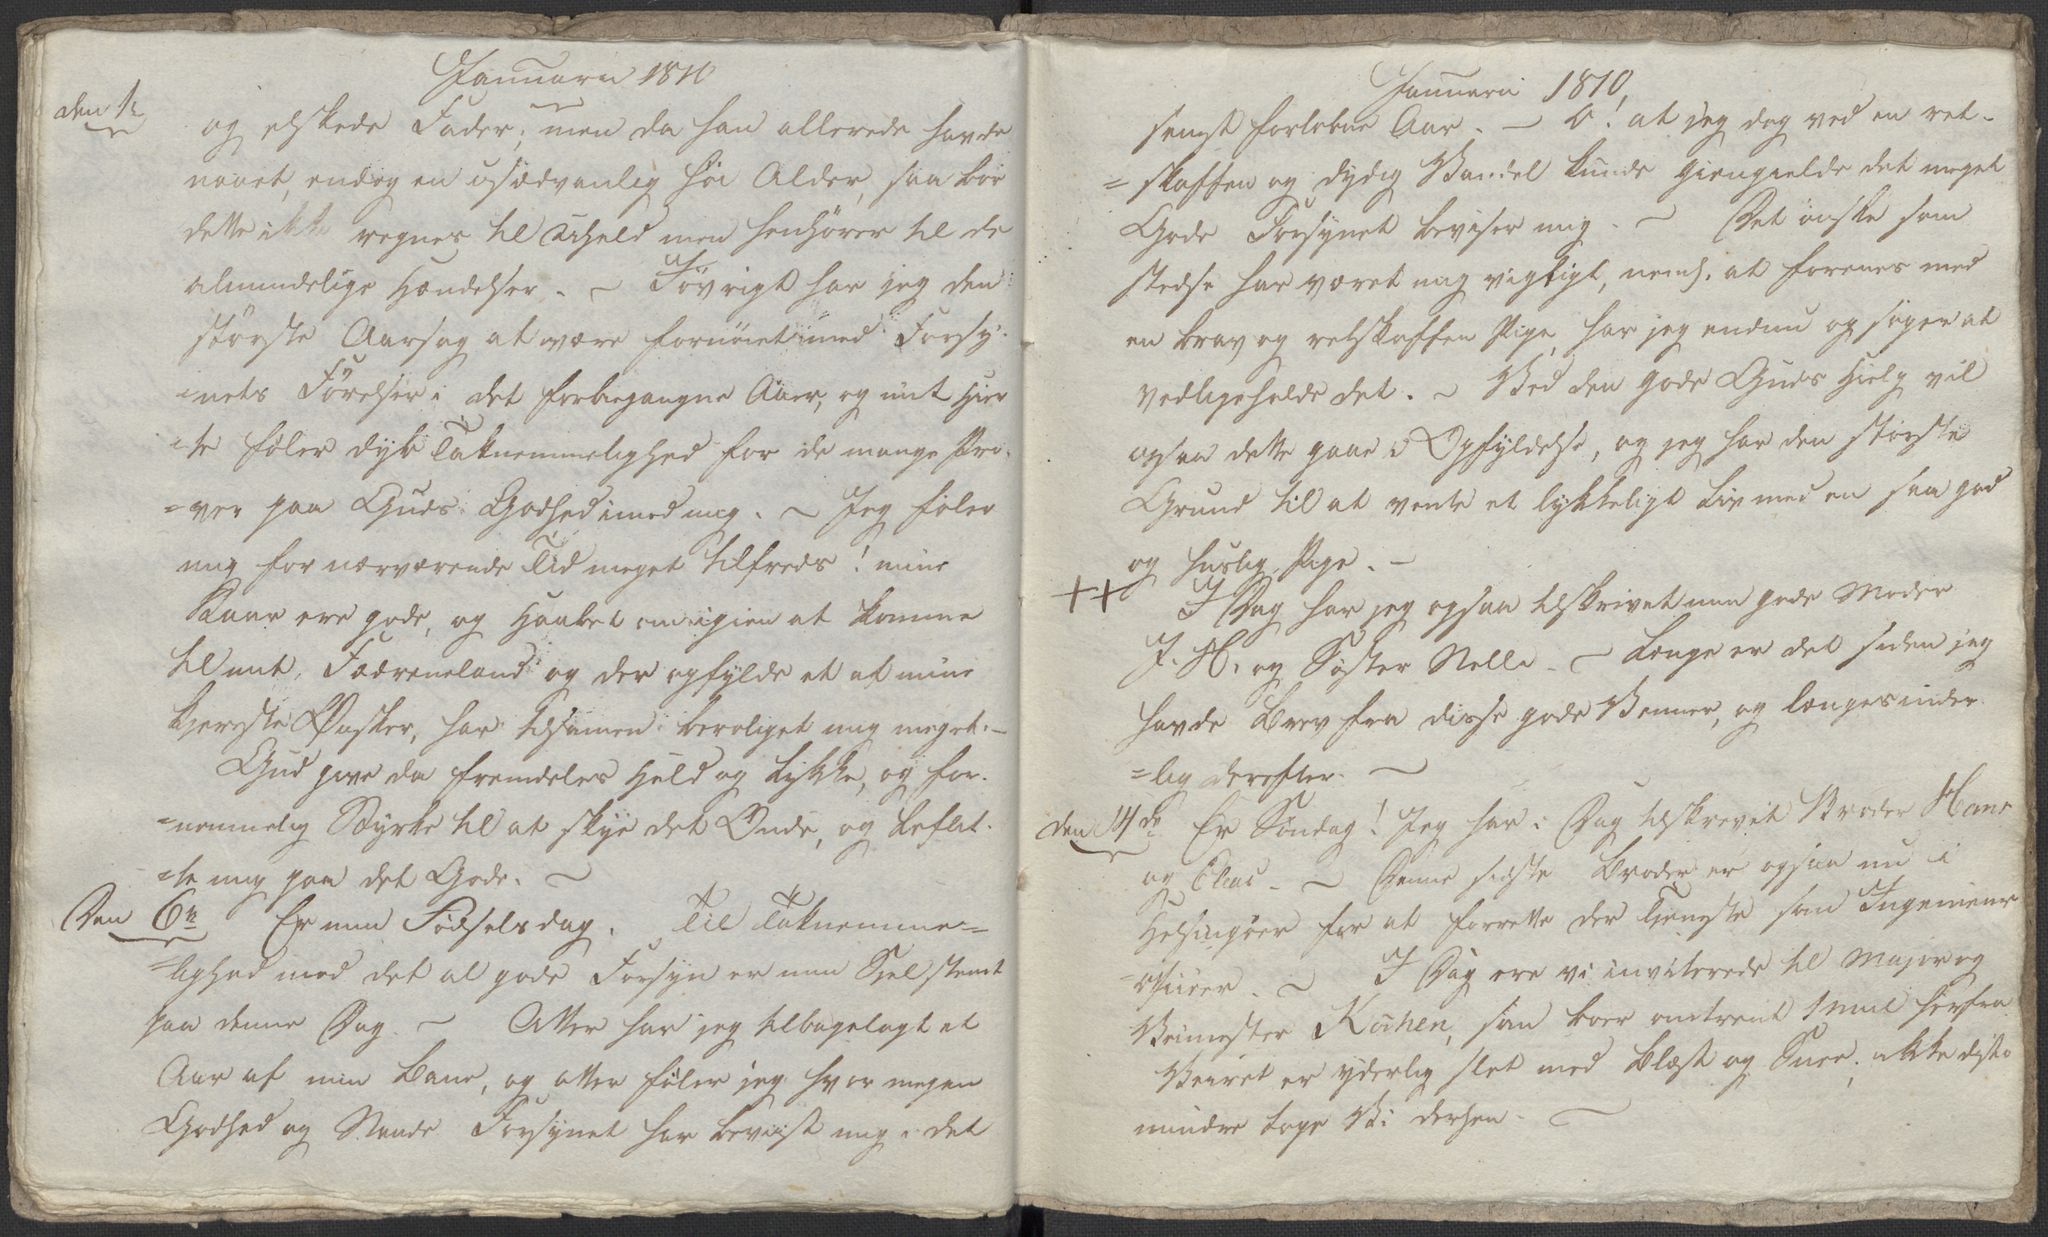 Januari 1810
den 1te
og elskede Fader; men da han allerede havde
naaet, endog en usædvanlig høi Alder, saa bør
dette ikke regnes til Uheld men henhører til de
almindelige Hændelser. – Iøvrigt har jeg den
största Aarsag at være fornöiet med Forsy-
-nets Førelser i det forbiegangne Aar, og mit Hier
-te føler dyb Taknemmelighed for de mange Prö-
=ver paa Guds Godhed imod mig. – Jeg føler
mig for nærværende Tid meget tilfreds! mine
Kaar ere gode, og Haabet om igien at komme
til mit Fædreneland og der opfylde et af mine
kjereste Ønsker, har tilsamen beroliget mig meget. –
Gud give da fremdeles Held og Lykke, og for-
=nemmelig Styrke til at skye det Onde, og beflit-
=te mig paa det Gode. –
Den 6te Er min Fødselsdag. Til Taknemme=
=lighed mod det al gode Forsyn er min Siel stemt
paa denne Dag. – Atter har jeg tilbagelagt et
Aar af min Bane, og atter föler jeg hvor megen
Godhed og Naade Forsynet har beviist mig i det
Januari 1810,
senest forløbne Aar. – O! at jeg dog ved en ret-
=skaffen og dydig Vandel kunde giengielde det meget
Gode Forsynet beviser mig. – Det ønske som
stedse har været mig vigtigt, neml. at forenes med
en brav og retskaffen Pige, har jeg endnu og söger at
vedligeholde det. – Ved den gode Guds Hielp vil
ogsaa dette gaae i Opfyldelse, og jeg har den störste
Grund til at vente et lykkeligt Liv med en saa god
og huslig Pige. –
++ I Dag har jeg ogsaa tilskrivet min gode Moder
J. H. og Søster Nelle. – Længe er det siden jeg
havde Brev fra disse gode Venner, og længes inder
=lig derefter. –
den 14de Er Søndag! Jeg har i Dag tilskrevet Broder Hans
og Elias. – Denne sidste Broder er ogsaa nu i
Helsingöer for at forrette der Tjeneste som Ingenieur
=officer. – I Dag ere vi inviterede til Major og
Veimester Köhen, som boer omtrent 1 Miil herfra.
Veiret er yderlig slet med Blæst og Snee; ikke desto
mindre toge Vi derhen. –